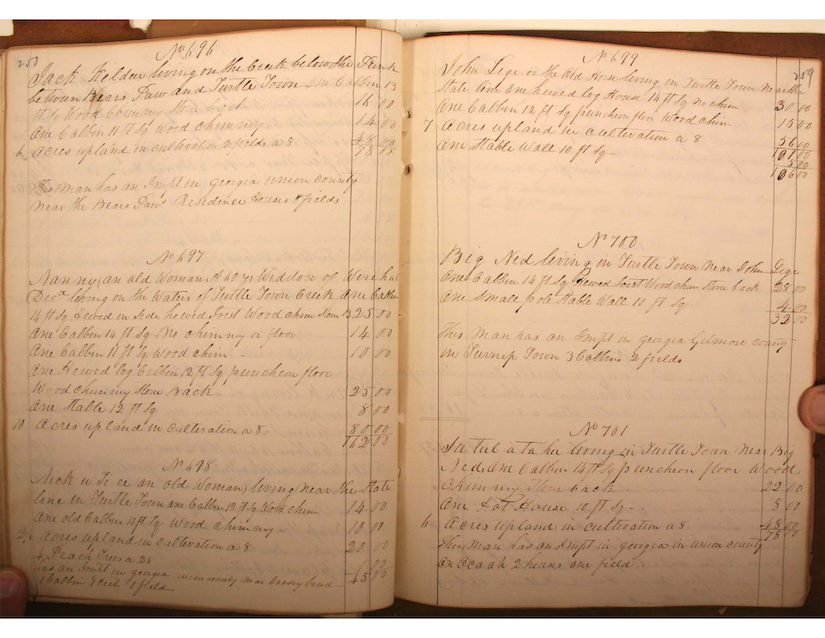 250
No 696
Jack Kelder living on the Creek below the
between Bears Paw and Turtle Town one Cabben 13
ft Sq Wood Chimney Stone back 16 00
One Cabben 11 ft Sq Wood chimny 14 00
6 Acres upland in cultivation 2 fields a 8 48 00
78 00
This man has an Impt in georgia union county
near the Bears Paws Residence House & fields
No 697
Nanny (an old Woman of 60 yr Widdow of
Decd living on the Waters of Turtle Town Creek One Cabben
14 ft Sq Hewed in Side hewed Joist Wood chim 25 00
One Cabben 14 ft Sq No chimny or floor 14 00
One Cabben 11 ft Sq Wood chim 10 00
One Hewed log Cabben 12 ft Sq puncheon floor
Wood chimny Stone Back 25 00
One Stable 12 ft Sq 8 00
10 Acres upland in cultivation a 8 80 00
162 00
No 698
an old Woman) living near the State
line in Turtle Town one Cabben 12 ft Sq Wood chim 14 00
One old Cabben 11 ft Sq Wood Chimny 10 00
2½ Acres upland in Cultivation a 8 20 00
4 Peach Trees a 25 1 00
has an Impt in georgia union county near 45 00
1 Cabben 1 Crib 1 field
259
No 699
John Lige or the Old House living in Turtle Town Near the
State One Hewed log House 14 ft Sq No chim 30 00
One Cabben 12 ft Sq puncheon floor Wood chim 15 00
7 Acres upland in cultivation a 8 56 00
101 00
One Stable Wall 10 ft Sq 5 00
106 00
No 700
Big Ned living in Turtle Town Near John Gege
One Cabben 14 ft Sq Hewed Joist Wood chim Stone back 28 00
One small pole Stable Wall 10 ft Sq 4 00
32 00
This Man has an Impt in georgia Gilmore county
in Turnip Town 3 Cabbens 2 fields
No 701
living in Turtle Town Near Big
Ned One Cabben 14 ft Sq puncheon floor Wood
Chimny Stone back 22 00
One Hot House 10 ft Sq 8 00
6 Acres upland in cultivation a 8 48 00
78 00
This Man has an Impt in georgia in union county
on 2 houses one field